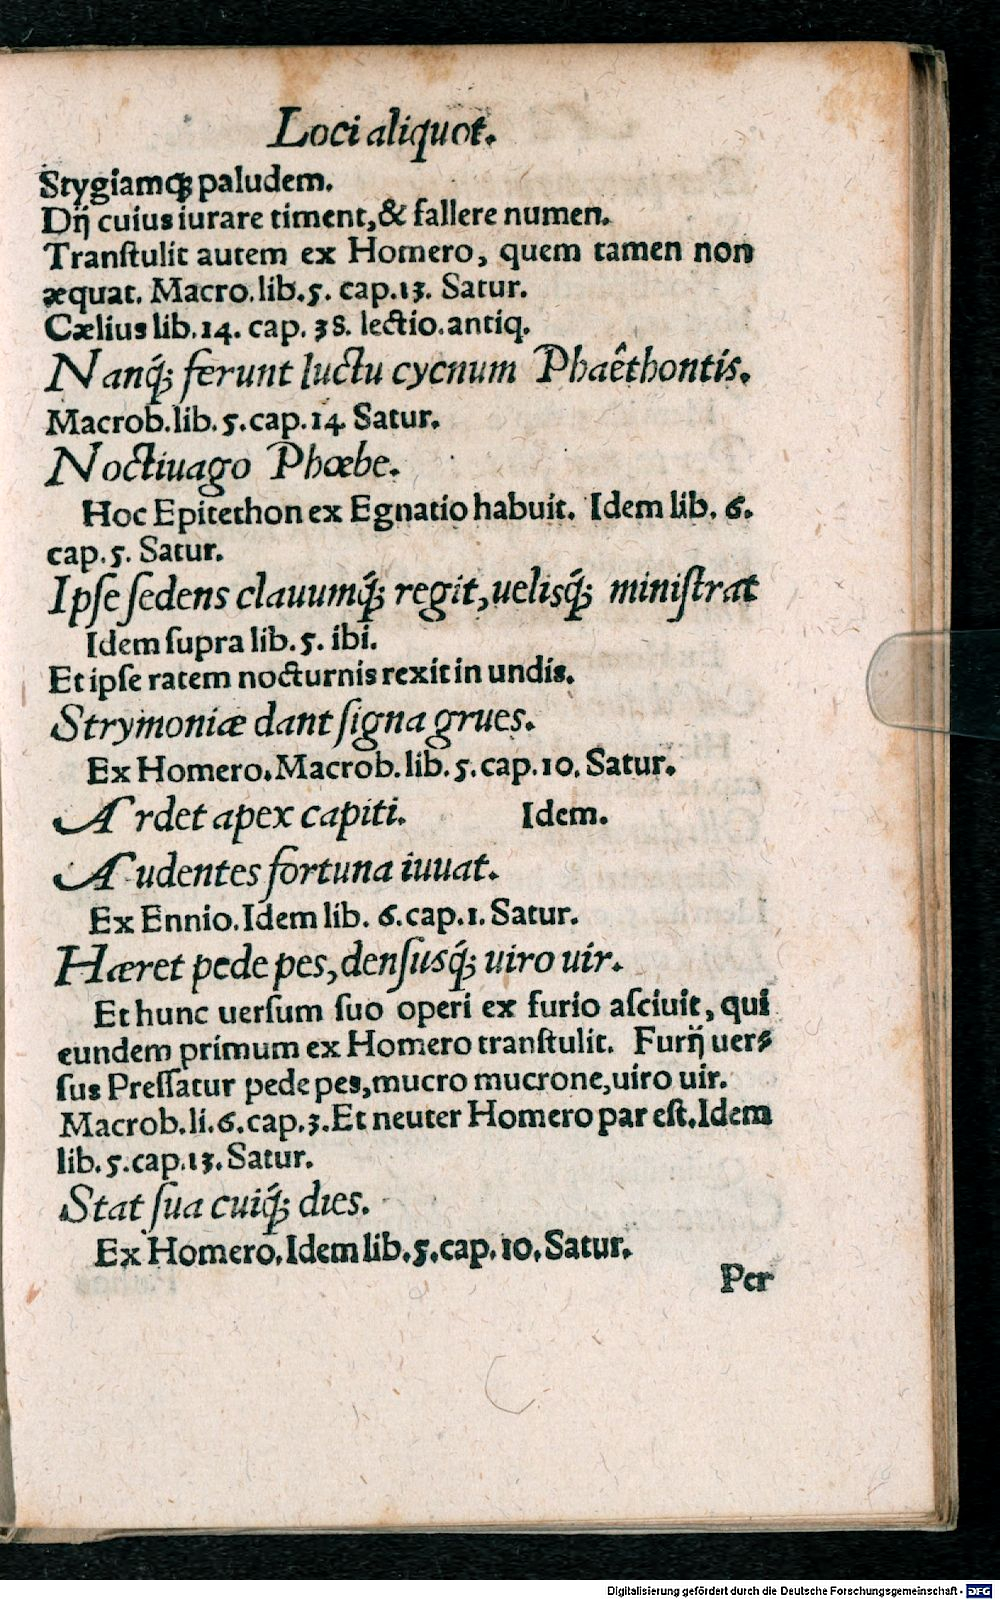 Loci aliquot.
Stygiamqꝫ paludem.
Dij cuius iurare timent,& fallere numen.
Tranſtulit autem ex Homero, quem tamen non
æquat. Macro.lib.5. cap.13. Satur.
Cælius lib.14. cap. 38. lectio.antiq.
Nanq́ꝫ ferunt luctu cycnum Phaêthontis.
Macrob.lib. 5.cap.14. Satur.
Noctiuago Phœbe.
Hoc Epitethon ex Egnatio habuit. Idem lib. 6.
cap.5. Satur.
Ipſe ſedens clauumq́ꝫ regit,uelisq́ꝫ miniſtrat
Idem ſupra lib. 5. ibi.
Et ipſe ratem nocturnis rexit in undis.
Strymoniæ dant ſigna grues.
Ex Homero.Macrob.lib.5.cap.10. Satur.
Ardet apex capiti. Idem.
Audentes fortuna iuuat.
Ex Ennio.Idem lib. 6.cap.1. Satur.
Hæret pede pes,denſusq́ꝫ uiro uir.
Et hunc uerſum ſuo operi ex furio aſciuit, qui
eundem primum ex Homero tranſtulit. Furij uer⸗
ſus Preſſatur pede pes,mucro mucrone,uiro uir.
Macrob.li.6.cap.3.Et neuter Homero par eſt.Idem
lib.5.cap.13.Satur.
Stat ſua cuiq́ꝫ dies.
Ex Homero.Idem lib.5.cap.10.Satur.
Per
Digitalisierung gefördert durch die Deutsche Forschungsgemeinschaft - DFG